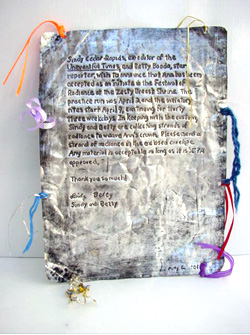 Sindy Cedar Rapids, co-editor of the
Uneventful Times, and Betty Booda, star
reporter, wish to announce that Ann has been
accepted as an initiate in the Festival of
Radiance at the Zesty Breeze Shrine. This
practice run is April 2 and the initiatory
rites start April 9, continuing for thirty
three weeks/days. In keeping with the custom,
Sindy and Betty are collecting strands of
radiance to weave Ann's crown. Please send a
strand of radiance in the enclosed envelope.
Any material is acceptable as long as it is EPA
approved.
Thank you so much!
Sindy Betty
Sindy and Betty